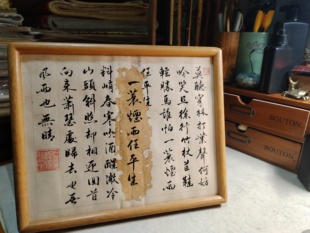 莫聽穿林打葉聲何妨
吟嘯且徐行竹杖芒鞋
輕勝馬誰怕一蓑煙雨
任平生
一蓑煙雨任平生
料峭春寒吹酒醒微冷
山頭斜照却相迎回首
向來蕭瑟處歸去也無
風雨也無晴